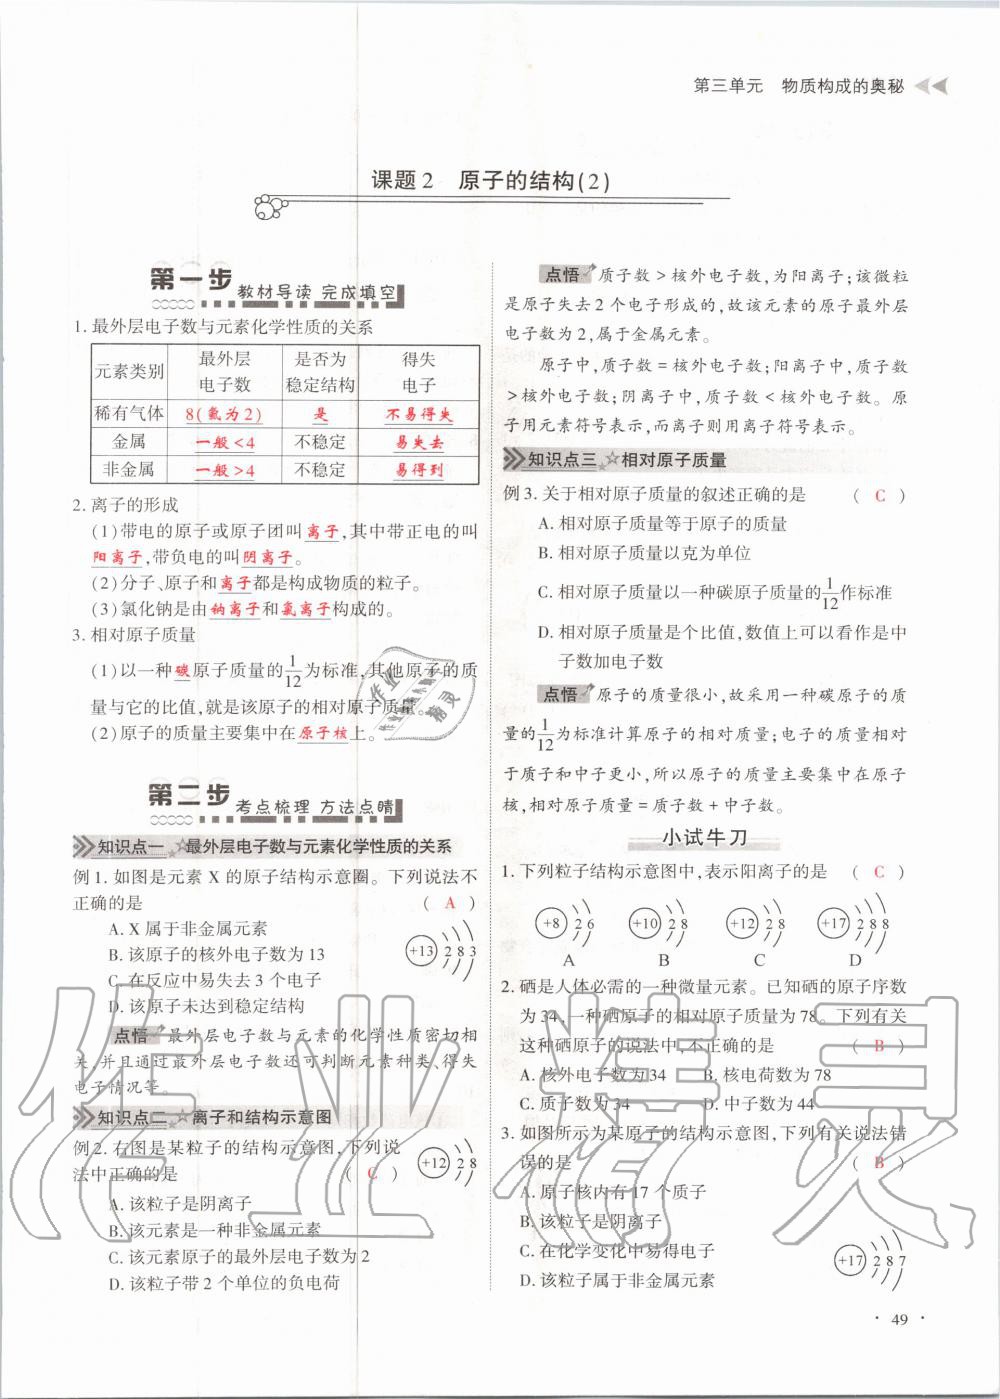 第三单元 物质构成的奥秘
课题2 原子的结构(2)
第一步 教材导读 完成填空
1. 最外层电子数与元素化学性质的关系
元素类别 最外层电子数 是否为稳定结构 得失电子
稀有气体 8(氦为2) 是 不易得失
金属 一般<4 不稳定 易失去
非金属 一般>4 不稳定 易得到
2. 离子的形成
(1)带电的原子或原子团叫离子,其中带正电的叫
阳离子,带负电的叫阴离子。
(2)分子、原子和离子都是构成物质的粒子。
(3)氯化钠是由钠离子和氯离子构成的。
3. 相对原子质量
(1)以一种碳原子质量的1/12为标准,其他原子的质
量与它的比值,就是该原子的相对原子质量。
(2)原子的质量主要集中在原子核上。
第二步 考点梳理 方法点睛
知识点一 ☆最外层电子数与元素化学性质的关系
例1. 如图是元素 X 的原子结构示意图。下列说法不
正确的是 ( A )
A. X 属于非金属元素
B. 该原子的核外电子数为 13
C. 在反应中易失去 3 个电子
D. 该原子未达到稳定结构
+13 2 8 3
点悟 最外层电子数与元素的化学性质密切相
关,并且通过最外层电子数还可判断元素种类、得失
电子情况等。
知识点二 ☆离子和结构示意图
例2. 右图是某粒子的结构示意图,下列说
法中正确的是 ( C )
+12 2 8
A. 该粒子是阴离子
B. 该元素是一种非金属元素
C. 该元素原子的最外层电子数为 2
D. 该粒子带 2 个单位的负电荷
点悟 质子数>核外电子数,为阳离子;该微粒
是原子失去2个电子形成的,故该元素的原子最外层
电子数为2,属于金属元素。
原子中,质子数=核外电子数;阳离子中,质子数
>核外电子数;阴离子中,质子数<核外电子数。原
子用元素符号表示,而离子则用离子符号表示。
知识点三 ☆相对原子质量
例3. 关于相对原子质量的叙述正确的是 ( C )
A. 相对原子质量等于原子的质量
B. 相对原子质量以克为单位
C. 相对原子质量以一种碳原子质量的1/12作标准
D. 相对原子质量是个比值,数值上可以看作是中
子数加电子数
点悟 原子的质量很小,故采用一种碳原子的质
量的1/12为标准计算原子的相对质量;电子的质量相对
于质子和中子更小,所以原子的质量主要集中在原子
核,相对原子质量=质子数+中子数。
小试牛刀
1. 下列粒子结构示意图中,表示阳离子的是 ( C )
+8 2 6 +10 2 8 +12 2 8 +17 2 8 8
A B C D
2. 硒是人体必需的一种微量元素。已知硒的原子序数
为34,一种硒原子的相对原子质量为78。下列有关
这种硒原子的说法中,不正确的是 ( B )
A. 核外电子数为 34 B. 核电荷数为 78
C. 质子数为 34 D. 中子数为 44
3. 如图所示为某原子的结构示意图,下列有关说法错
误的是 ( B )
A. 原子核内有 17 个质子
B. 该粒子是阴离子
C. 在化学变化中易得电子
D. 该粒子属于非金属元素
+17 2 8 7
· 49 ·
作业精灵